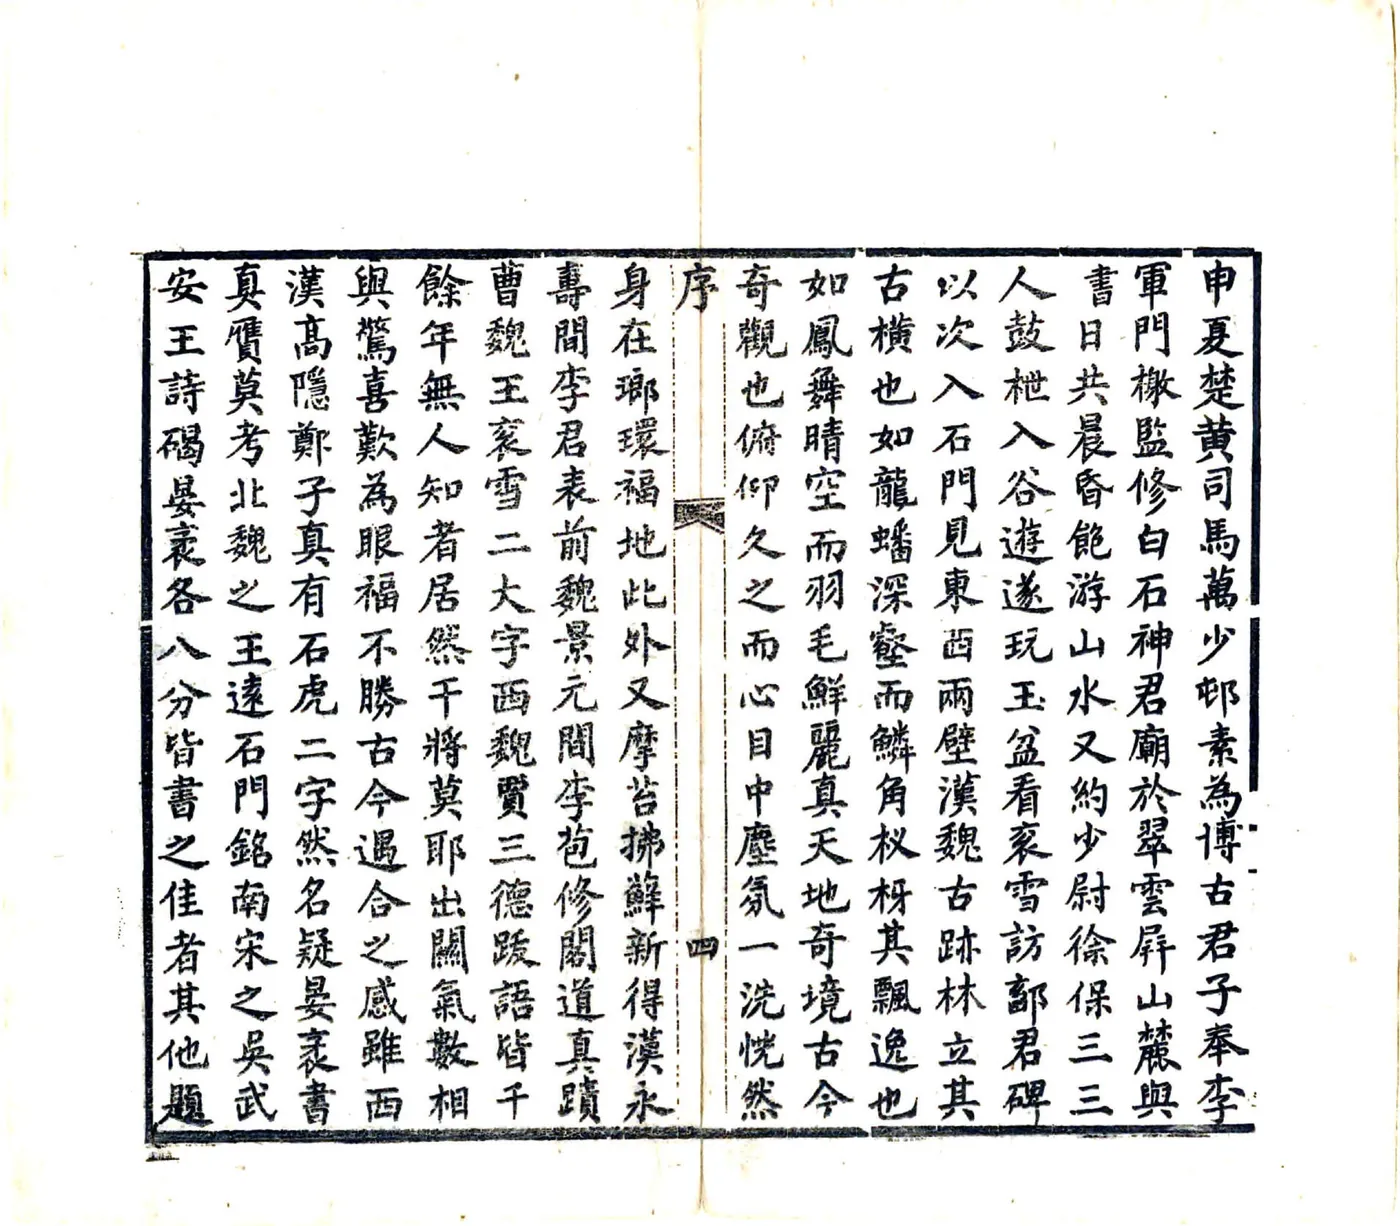 申夏楚黄司馬萬少邨素為博古君子奉李
軍門檄監修白石神君廟於翠雲屏山麓與
書日共晨昏飽游山水又約少尉徐保三三
人鼓枻入谷遊遂玩玉盆看衮雪訪鄐君碑
以次入石門見東西兩壁漢魏古跡林立其
古橫也如龍蟠深壑而鱗角杈枒其飄逸也
如鳳舞晴空而羽毛鮮麗真天地奇境古今
奇觀也俯仰久之而心目中塵氛一洗恍然
序
四
身在瑯環福地此外又摩苔拂蘚新得漢永
壽間李君表前魏景元間李苞修閣道真蹟
曹魏王衮雪二大字西魏賈三德跋語皆千
餘年無人知者居然干將莫耶出關氣數相
與驚喜歎為眼福不勝古今遇合之感雖西
漢高隱鄭子真有石虎二字然名疑晏袤書
真贋莫考北魏之王遠石門銘南宋之吳武
安王詩碣晏袤各八分皆書之佳者其他題